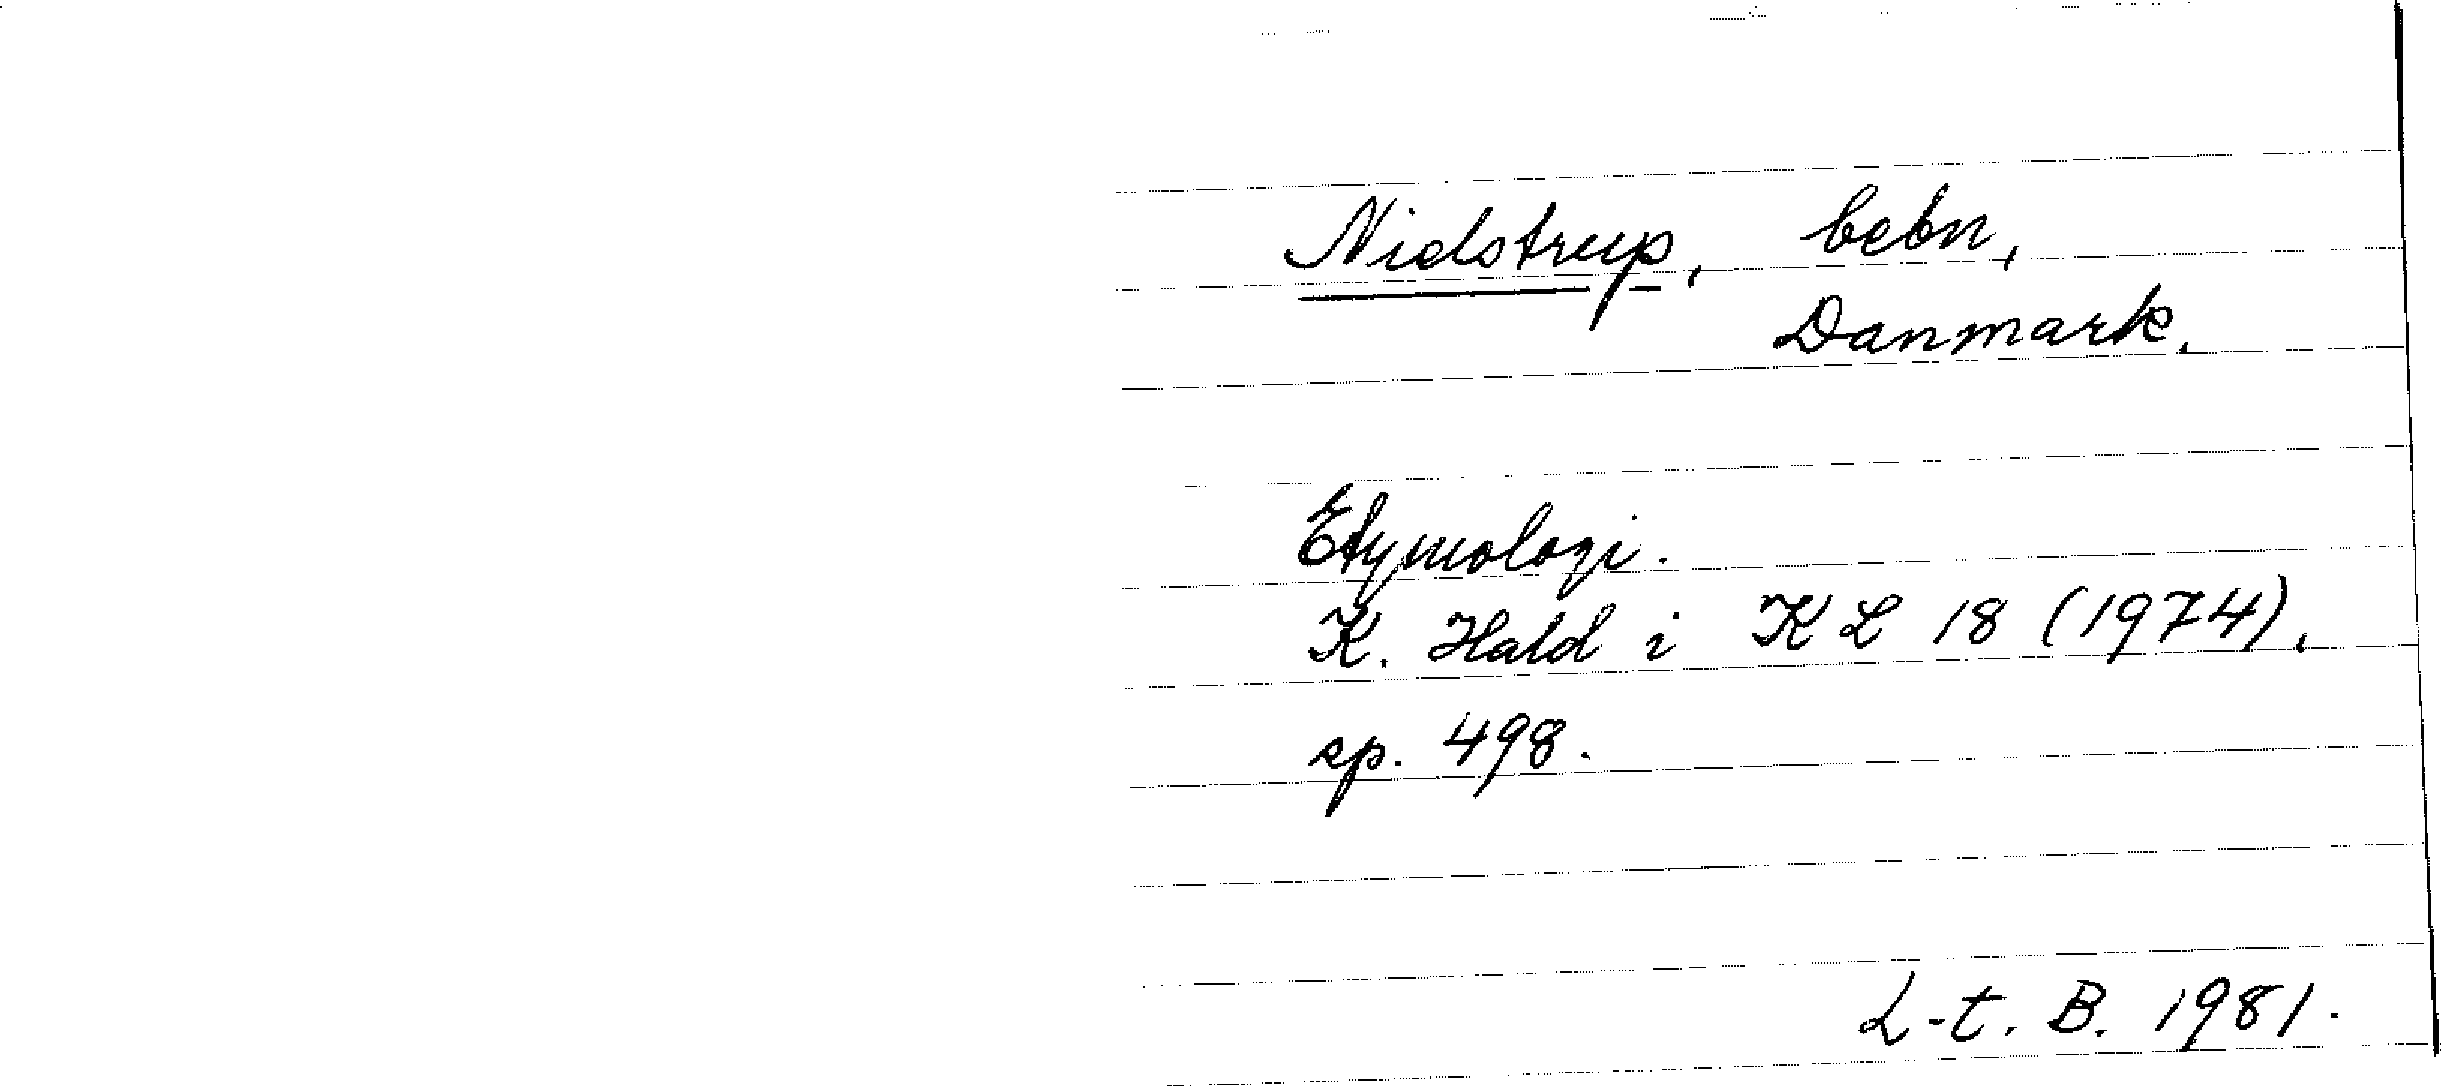 Nidstrup, bebn,
Danmark.
Etymologi.
K. Hald i KL 18 (1974),
sp. 498.
L-t. B. 1981.